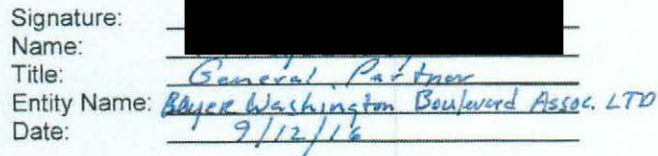 Signature:
Name:
Title: General Partner
Entity Name: Washington Boulevard Assoc. LTD
Date: 9/12/16